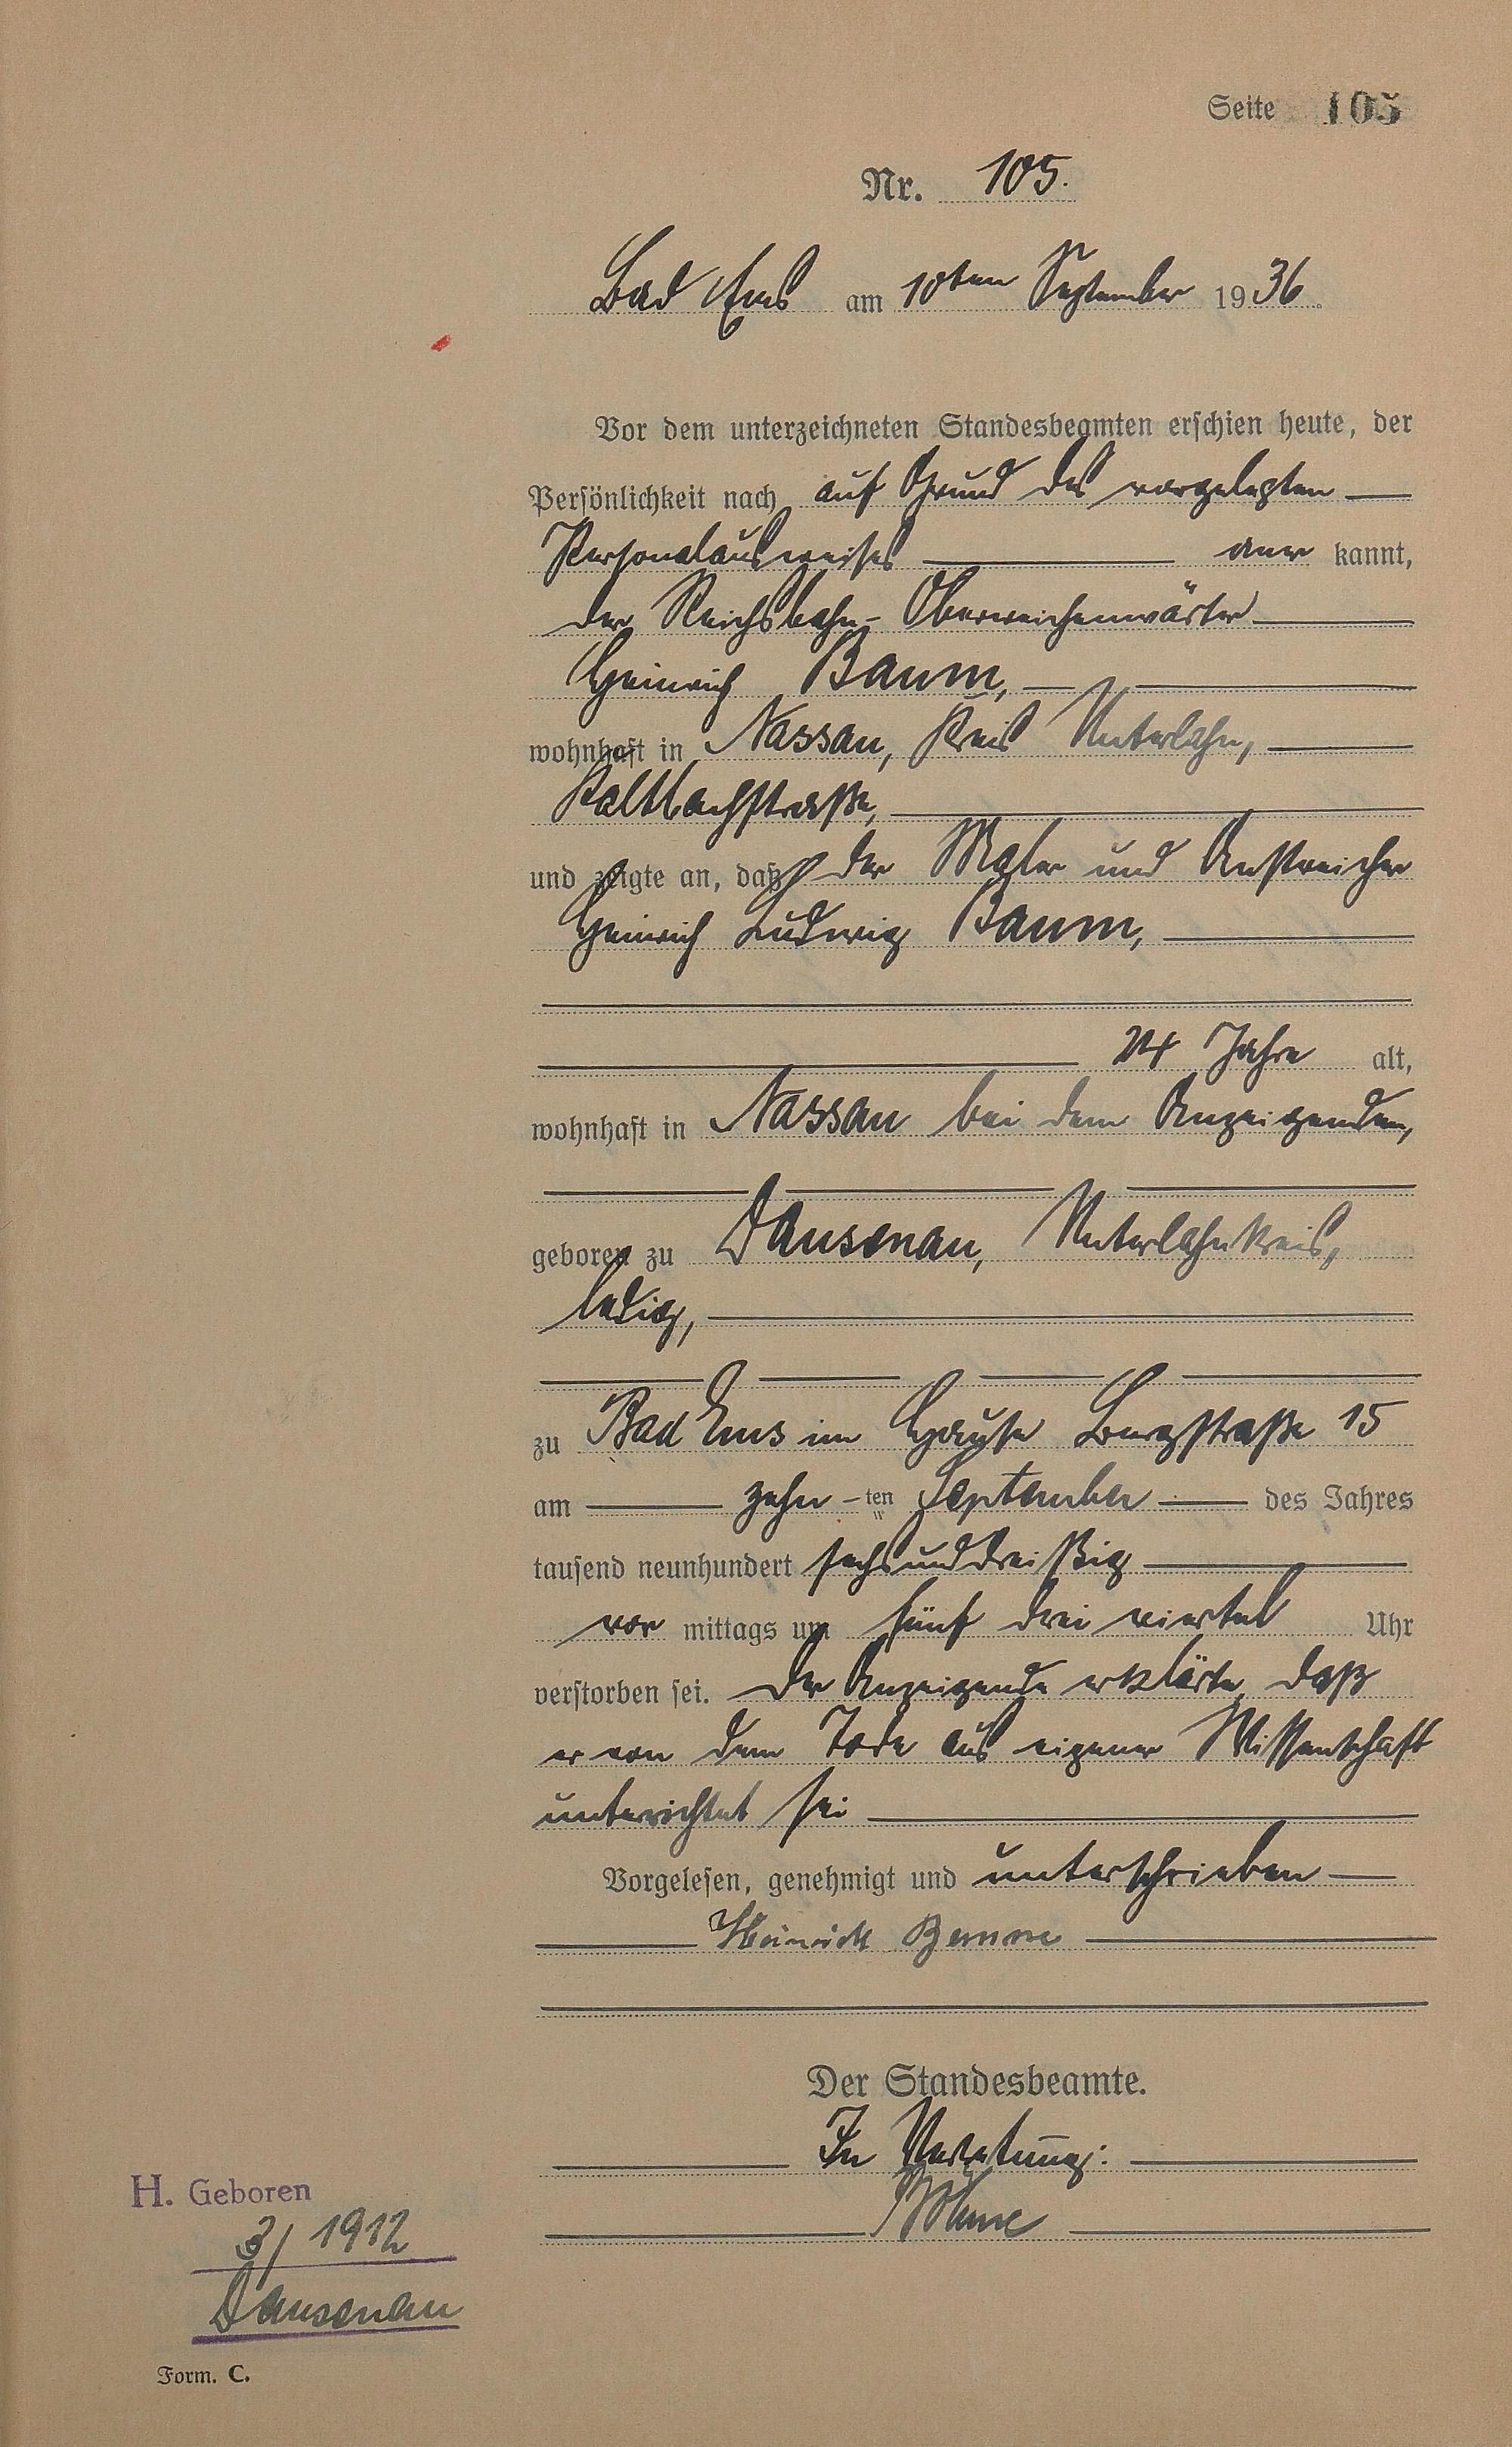 Seite 105
Nr. 105.
Bad Ems am 10ten September 1936.
Vor dem unterzeichneten Standesbeamten erschien heute, der
Persönlichkeit nach auf Grund des vorgelegten
Personalausweises aner kannt,
der Reichsbahn-Oberweichenwärter
Heinrich Baum,
wohnhaft in Nassau, Kreis Unterlahn,
Kaltbachstraße,
und zeigte an, daß der Maler und Anstreicher
Heinrich Ludwig Baum,
24 Jahre alt,
wohnhaft in Nassau bei dem Anzeigenden,
geboren zu Dausenau, Unterlahnkreis,
ledig,
zu Bad Ems im Hause Burgstraße 15
am zehn-ten September des Jahres
tausend neunhundert sechsunddreißig
vor mittags um fünf drei viertel Uhr
verstorben sei. Der Anzeigende erklärte, daß
er von dem Tode aus eigener Wissenschaft
unterrichtet sei
Vorgelesen, genehmigt und unterschrieben
Heinrich Baum
Der Standesbeamte.
In Vertretung:
H. Geboren
3/1912
Dausenau
Form. C.